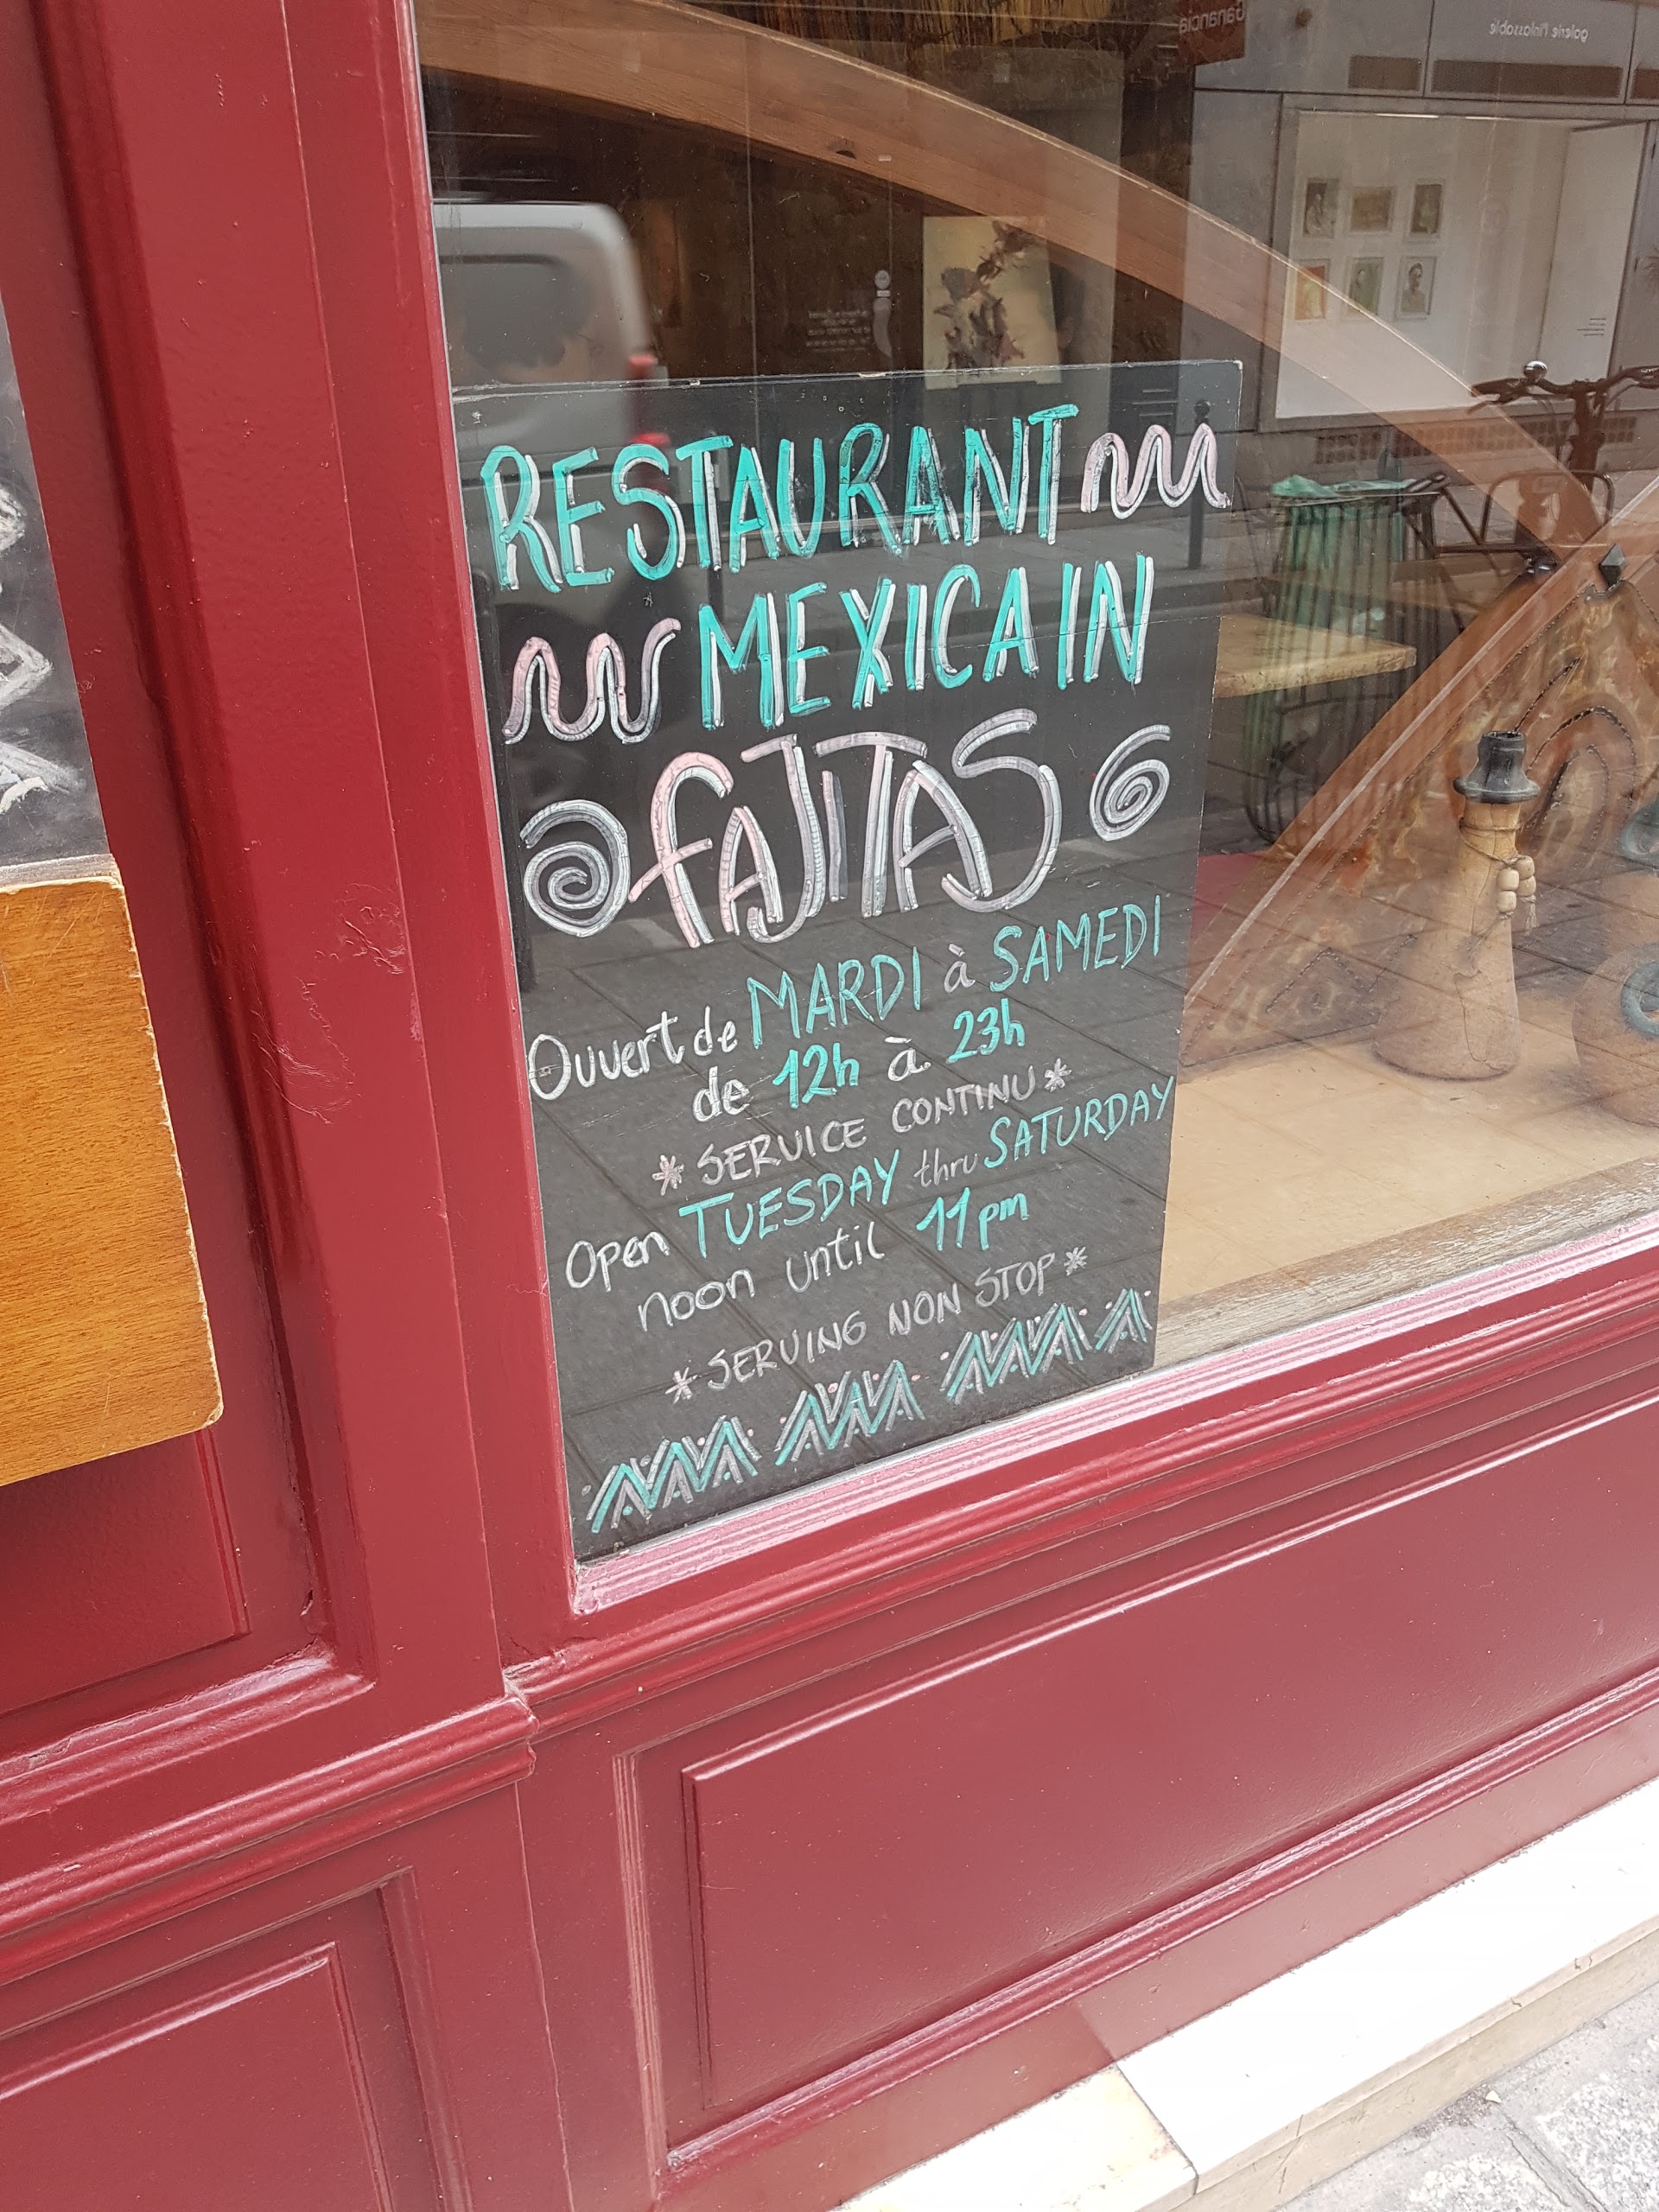 Ganancia
galerie l'inlassable
RESTAURANT
MEXICAIN
FAJITAS
Ouvert de MARDI à SAMEDI
de 12h à 23h
* SERVICE CONTINU *
Open TUESDAY thru SATURDAY
noon until 11pm
* SERVING NON STOP *